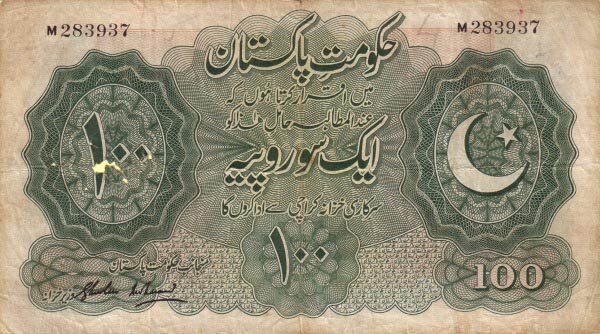 M283937 M283937
حکومتِ پاکستان
میں اقرار کرتا ہوں کہ
عندالمطالبہ حامل ہٰذا کو
ایک سو روپیہ
سرکاری خزانہ کراچی سے ادا کروں گا
۱۰۰
۱۰۰
100
منجانب حکومت پاکستان
وزیر خزانہ